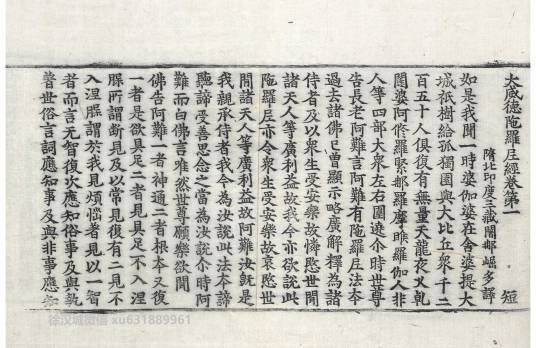 大威德陀羅尼經卷第一 短
隋北印度三藏闍那崛多譯
如是我聞一時婆伽婆在舍婆提大
城祇樹給孤獨園與大比丘衆千二
百五十人俱復有無量天龍夜叉乾
闥婆阿修羅緊那羅摩睺羅伽人非
人等四部大衆左右圍遶尒時世尊
告長老阿難言阿難有陀羅尼法本
過去諸佛已曾顯示略廣解釋爲諸
侍者及以衆生受安樂故憐愍世間
諸天人等廣利益故我今亦欲說此
陀羅尼亦令衆生受安樂故哀愍世
間諸天人等廣利益故阿難汝旣是
我親承侍者我今爲汝說此法本諦
聽諦受善思念之當爲汝說尒時阿
難而白佛言唯然世尊願樂欲聞
佛告阿難一者神通二者根本又復
一者是欲具足二者見具足不入涅
槃所謂斷見及以常見復有二見不
入涅槃謂於我見煩惱者見以一智
者而言无智復次應知俗事及與執
普世俗言詞應知事及與非事應
xu631889961